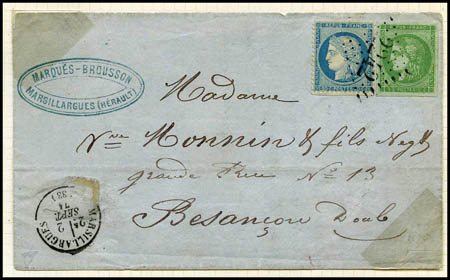 MARQUÈS-BROUSSON
MARSILLARGUES (HÉRAULT)
REPUB · FRANC
POSTES
Madame
Vve Monnin & fils Negts
grande Rue No 13
Besançon Doub
MARSILLARGUES
2
SEPT.
74
(33)